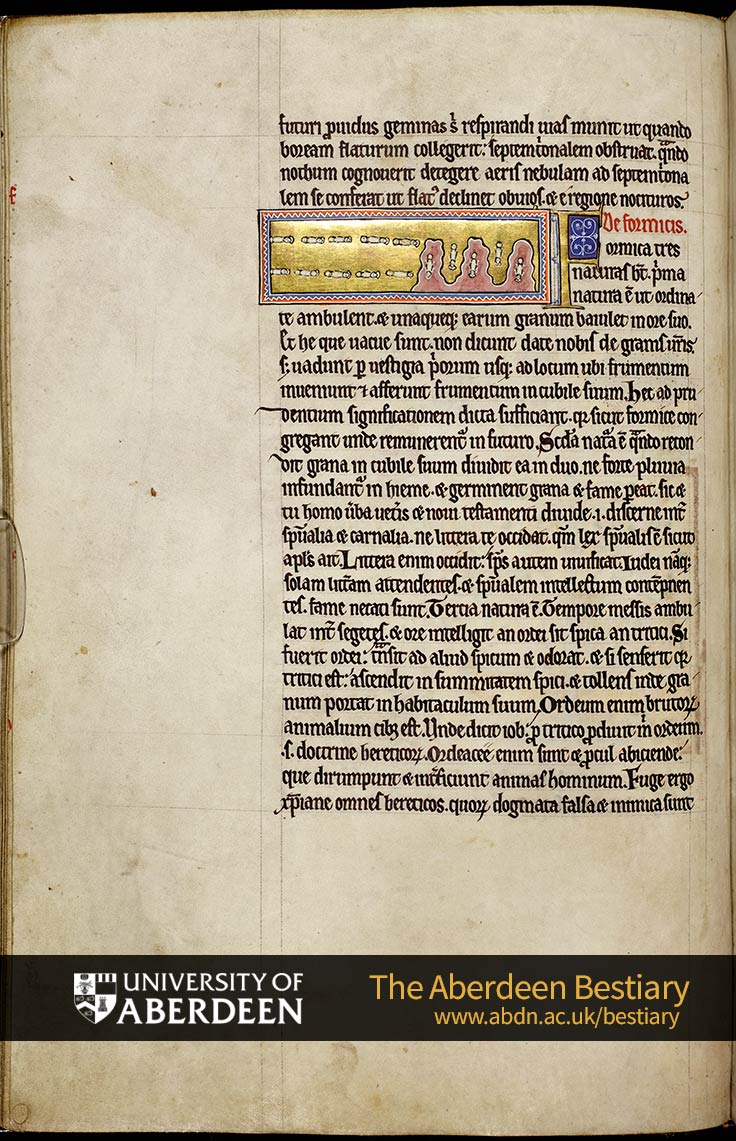 futuri ꝓuidus geminas s; respirandi uias munit ut quando
boream flaturum collegerit: septemt̾onalem obstruat. qn̄do
nothum cognouerit detegere aeris nebulam ad septemt̾iona
lem se conferat ut flat᷒ declinet obuios. & e regione nocituros.
De formicis.
Formica tres
naturas ht̄. p̾ma
natura ē ut ordina
te ambulent. & unaqueq; earum granum baiulet in ore suo.
Et he que uacue sunt. non dicunt date nobis de granis ur̄is.
s; uadunt ꝑ uestigia p̾orum usq; ad locum ubi frumentum
inueniunt ⁊ afferunt frumentum in cubile suum. Hec ad pru
dentium significationem dicta sufficiant. qr sicut formice con
gregant unde remunerent᷒ in futuro. Scd̄a nat̾a ē qn̄do recon
dit grana in cubile suum diuidit ea in duo. ne forte pluuia
infundant᷒ in hieme. & germinent grana & fame ꝑeat. sic &
tu homo ūba uet̾is & noui testamenti diuide .i. discerne int̾
spūalia & carnalia. ne littera te occidat. qm̄ lex spūalis ē sicut
apl̄s ait. Littera enim occidit: sps̄ autem uiuificat. Iudei nāq;
solam litt̾am attendentes. & spūalem intellectum contēpnen
tes. fame necati sunt. Tercia natura ē. Tempore messis ambu
lat int̾ segetes. & ore intelligit an ordei sit spica an tritici. Si
fuerit ordei: t̾nsit ad aliud spicum & odorat. & si senserit qr
tritici est: ascendit in summitatem spici. & tollens inde gra
num portat in habitaculum suum. Ordeum enim brutoꝝ
animalium cib᷒ est. Unde dicit iob. ꝓ tritico ꝓdiuit m̄ ordeum.
.s. doctrine hereticoꝝ. Ordeacee enim sunt & ꝓcul abiciende:
que dirumpunt & int̾ficiunt animas hominum. Fuge ergo
xp̄iane omnes hereticos. quoꝝ dogmata falsa & inimica sunt
UNIVERSITY OF
ABERDEEN
The Aberdeen Bestiary
www.abdn.ac.uk/bestiary